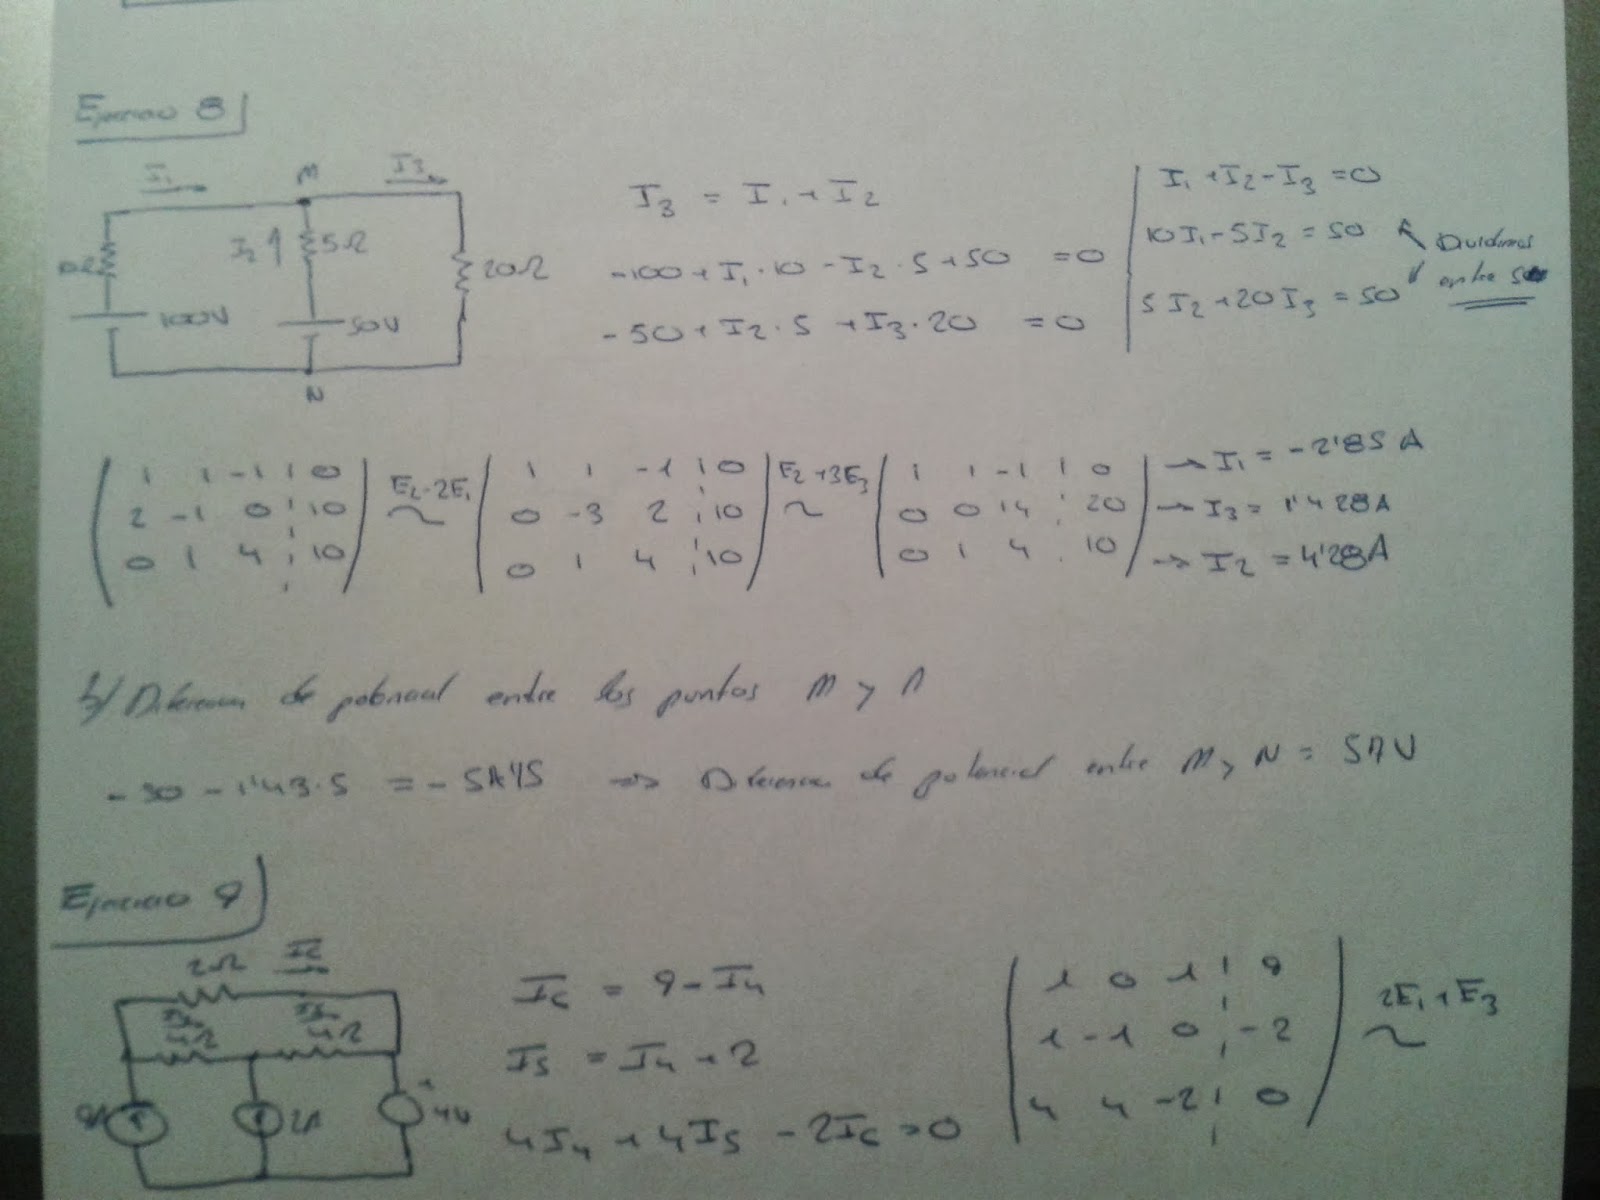 Ejercicio 8
I₁ M I₃
I₂ 5Ω 20Ω
100V 50V
N
I₃ = I₁ + I₂
-100 + I₁·10 - I₂·5 + 50 = 0
-50 + I₂·5 + I₃·20 = 0
I₁ + I₂ - I₃ = 0
10I₁ - 5I₂ = 50
5I₂ + 20I₃ = 50
Dividimos
entre 5
1 1 -1 0
2 -1 0 10
0 1 4 10
E₂-2E₁
~
1 1 -1 0
0 -3 2 10
0 1 4 10
E₂+3E₃
~
1 1 -1 0
0 0 14 20
0 1 4 10
→ I₁ = -2'85 A
→ I₃ = 1'428A
→ I₂ = 4'28A
b/ Diferencia de potencial entre los puntos M y N
-50 - 1'43·5 = -57'15 => Diferencia de potencial entre M y N = 57V
Ejercicio 9
2Ω I₆
4Ω 4Ω
9A 2A + 4V
I₆ = 9 - I₄
I₅ = I₄ + 2
4I₄ + 4I₅ - 2I₆ = 0
1 0 1 9
1 -1 0 -2
4 4 -2 0
2E₁+E₃
~